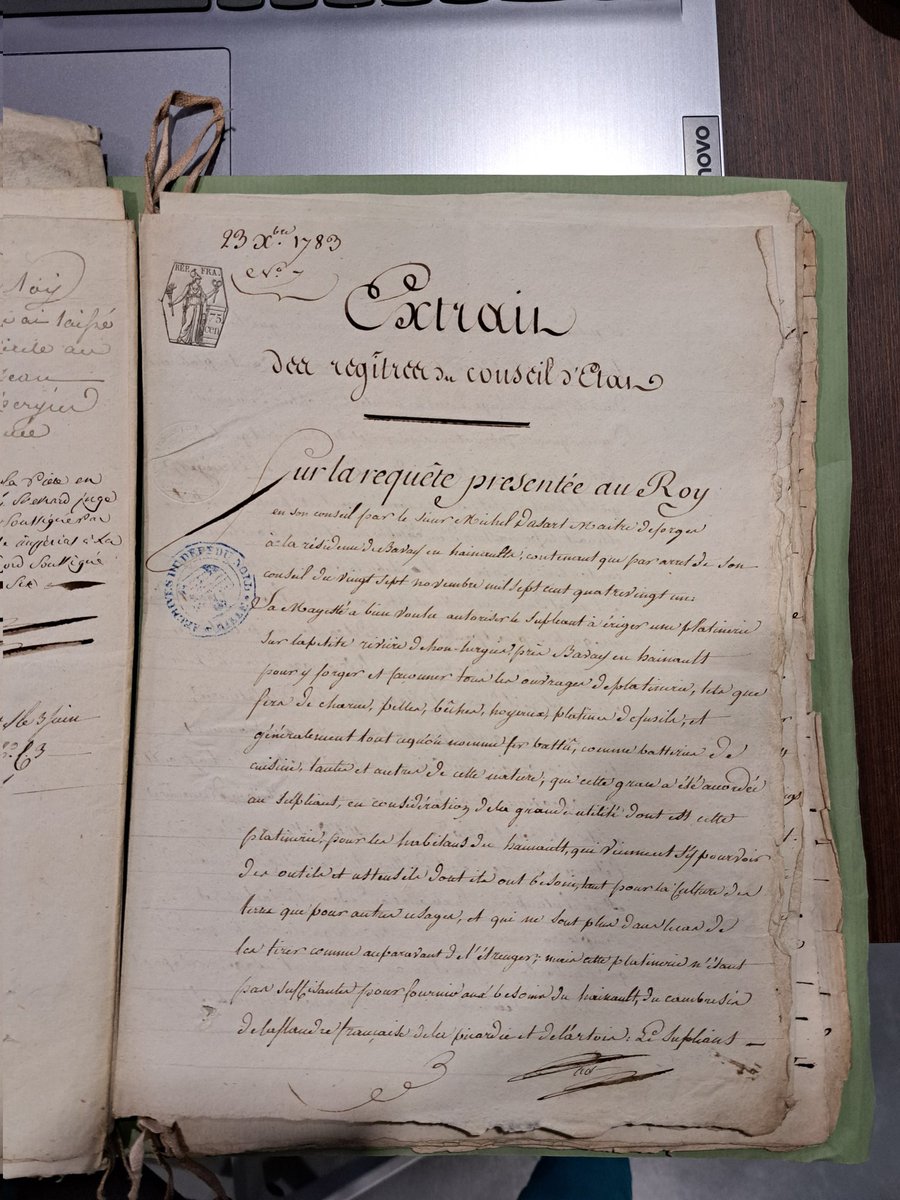 novo
23 Xbre 1783
No 7
REP. FRA.
75
CEN
Extrait
des regîtres du conseil d'Etat
Sur la requête presentée au Roy
en son conseil par le sieur Michel Dasart Maitre deforges
à la résidence de Bavay en hainault; contenant que par arret de son
conseil du vingt sept novembre mil sept cent quatrevingt un:
Sa Majesté a bien voulu autoriser le supliant à ériger une platinerie
sur la petite riviere d'hon-hergies près Bavay en hainault
pour y forger et façonner tous les ouvrages de platinerie, tels que
fers de charue, pelles, bêches, hoyeaux, platines de fusils, et
généralement tout ce qu'on nomme fer battu, comme batteries de
cuisine, et autres de cette nature, que cette grace a été accordée
au supliant, en considération de la grande utilité dont est cette
platinerie, pour les habitans du hainault, qui viennent s'y pourvoir
des outils et ustensils dont ils ont besoin, tant pour la culture des
terres que pour autres usages, et qui ne sont plus dans le cas de
les tirer comme auparavant de l'étranger; mais cette platinerie n'étant
pas suffisante pour fournir aux besoins du hainault, du cambresis
de la flandre française de la picardie et de l'artois: Le supliant
ARCHIVES DU DEPT DU NORD
Roy
ai laissé
au
La piece en
Bernard juge
Soussigné
à La
Soussigné
Six
le 3 juin
63